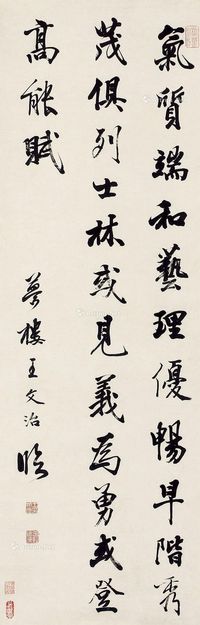 氣質端和藝理優暢早階秀
茂俱列士林或見義為勇或登
高能賦
夢樓王文治臨